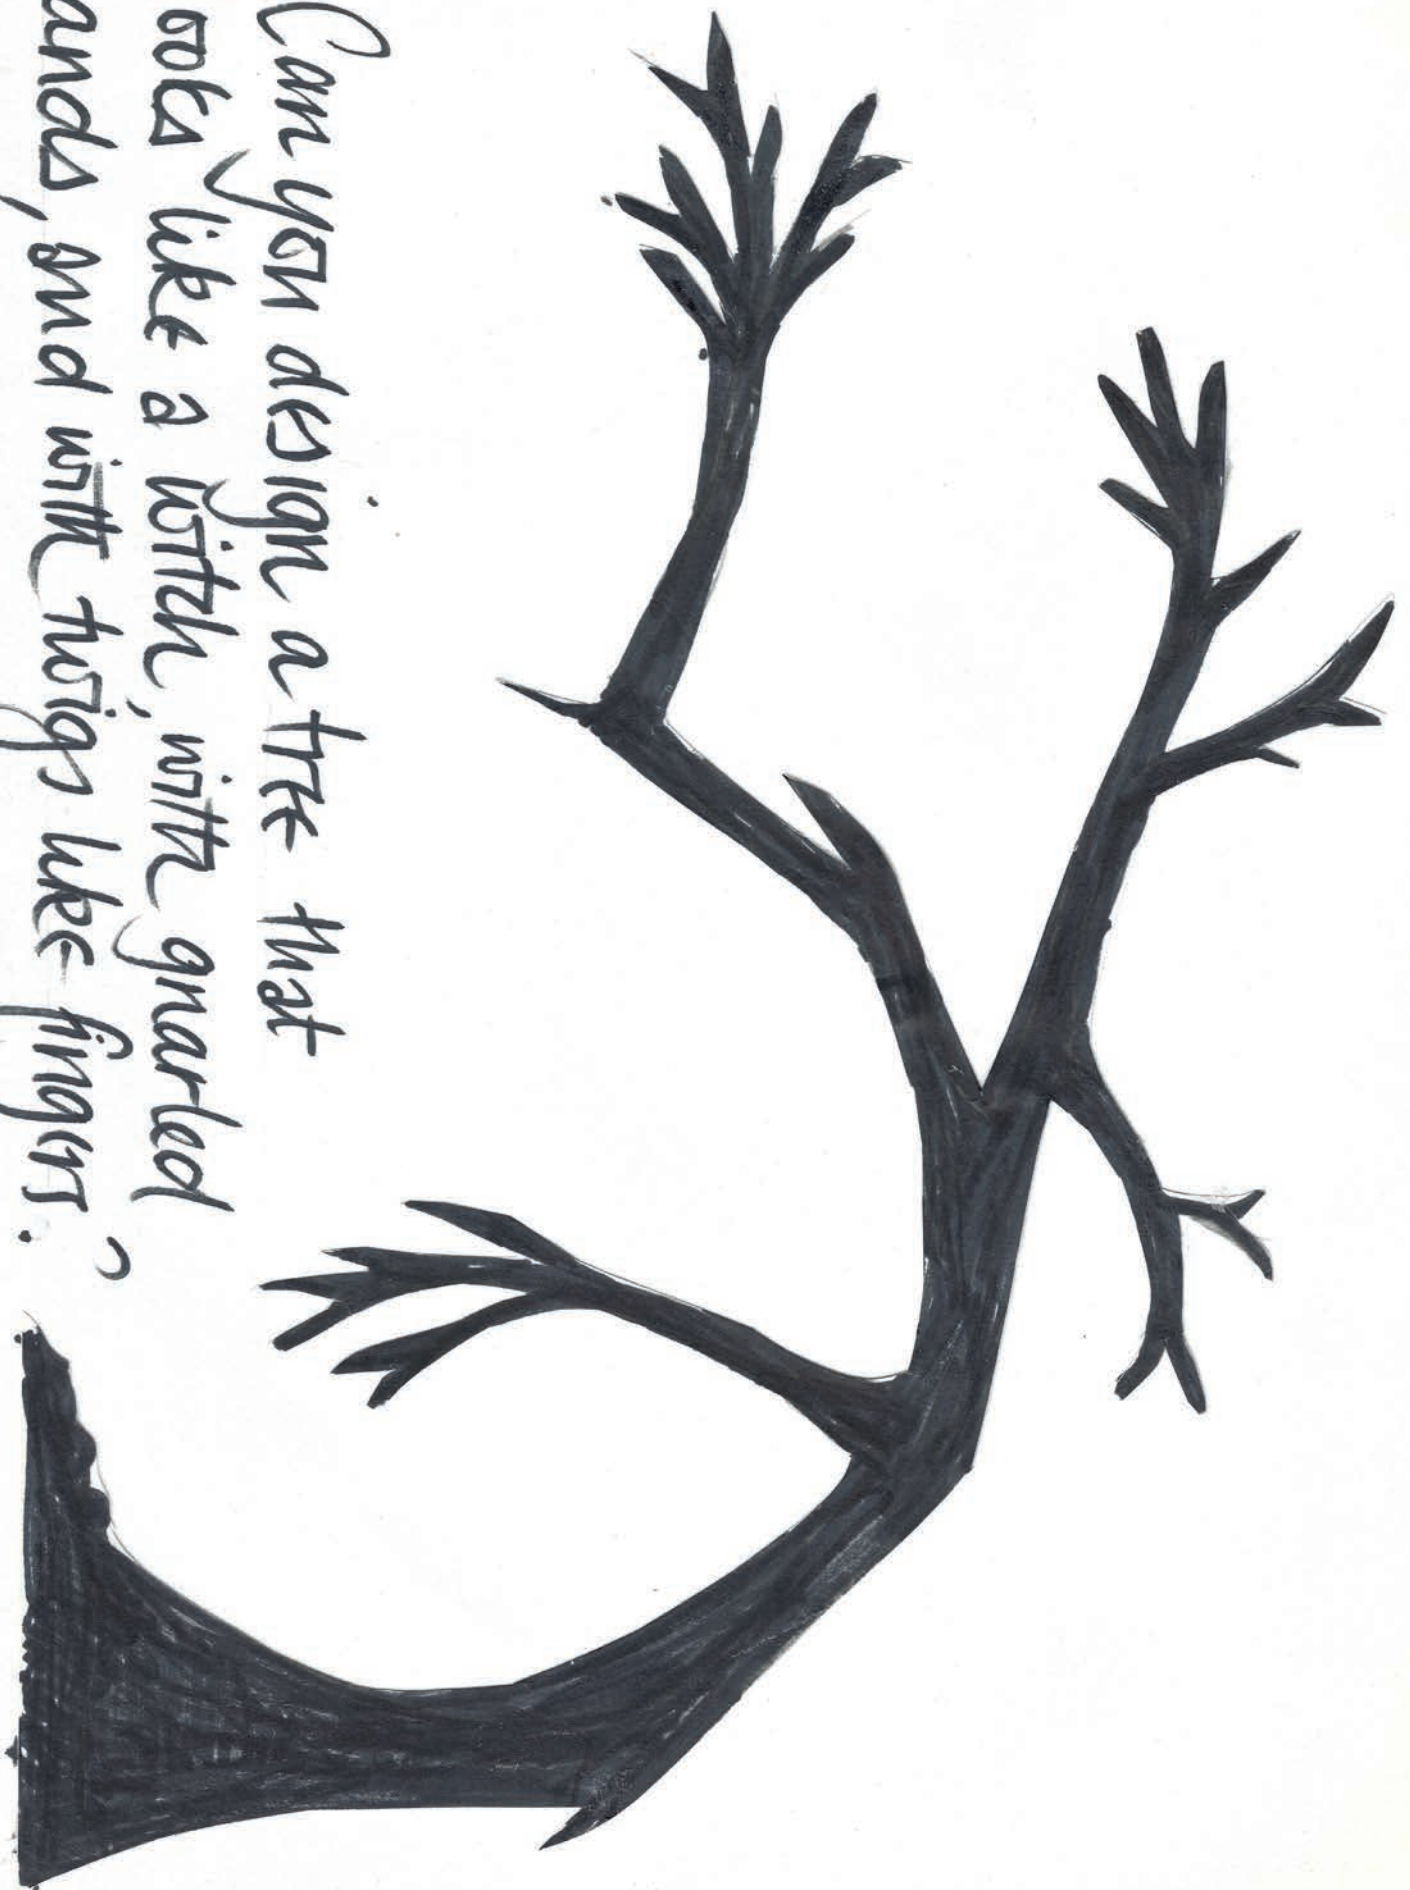 Can you design a tree that
ooks like a witch, with gnarled
ands, and with twigs like fingers.?